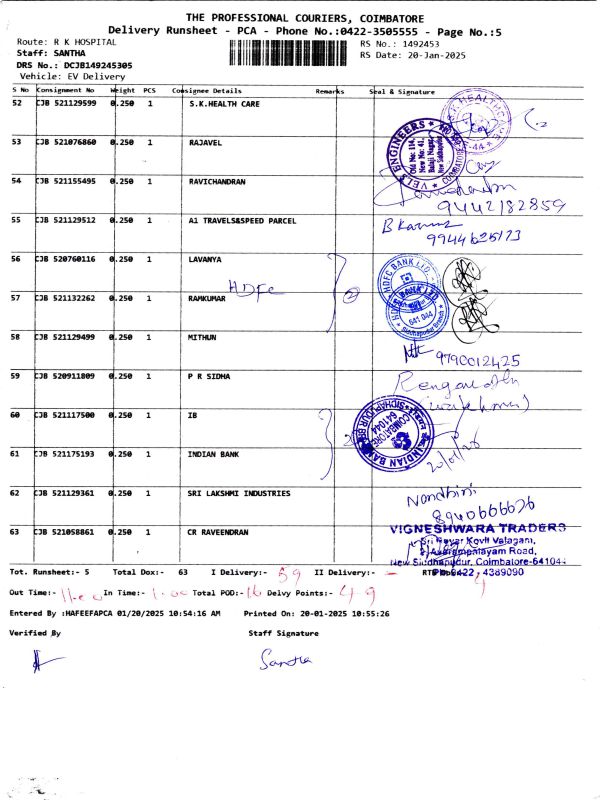 THE PROFESSIONAL COURIERS, COIMBATORE
Delivery Runsheet - PCA - Phone No.:0422-3505555 - Page No.:5
Route: R K HOSPITAL
RS No.: 1492453
Staff: SANTHA
RS Date: 20-Jan-2025
DRS No.: DCJB149245305
Vehicle: EV Delivery
S No Consignment No Weight PCS Consignee Details Remarks Seal & Signature
52 CJB 521129599 0.250 1 S.K.HEALTH CARE
53 CJB 521076860 0.250 1 RAJAVEL
VELS ENGINEERS
Old No: 114,
New No: 41,
Balaji Nagar,
New Siddhapudur
COIMBATORE
54 CJB 521155495 0.250 1 RAVICHANDRAN
9442182859
55 CJB 521129512 0.250 1 A1 TRAVELS&SPEED PARCEL
B Kannan
9944625173
56 CJB 520760116 0.250 1 LAVANYA
HDFC BANK LTD.
HDFC
2
57 CJB 521132262 0.250 1 RAMKUMAR
641 044
Siddhapudur Branch
58 CJB 521129499 0.250 1 MITHUN
9790012425
59 CJB 520911809 0.250 1 P R SIDHA
60 CJB 521117500 0.250 1 IB
INDIAN BANK
COIMBATORE
641044
61 CJB 521175193 0.250 1 INDIAN BANK
20/01/25
62 CJB 521129361 0.250 1 SRI LAKSHMI INDUSTRIES
Nandhini
8940666626
63 CJB 521058861 0.250 1 CR RAVEENDRAN
VIGNESHWARA TRADERS
Avarampalayam Road,
New Siddhapudur, Coimbatore-641044
4389090
Tot. Runsheet:- 5 Total Dox:- 63 I Delivery:- 59 II Delivery:- - 4
Out Time:- 11.00 In Time:- 1.00 Total POD:- 16 Delvy Points:- 49
Entered By :HAFEEFAPCA 01/20/2025 10:54:16 AM Printed On: 20-01-2025 10:55:26
Verified By Staff Signature
Santha